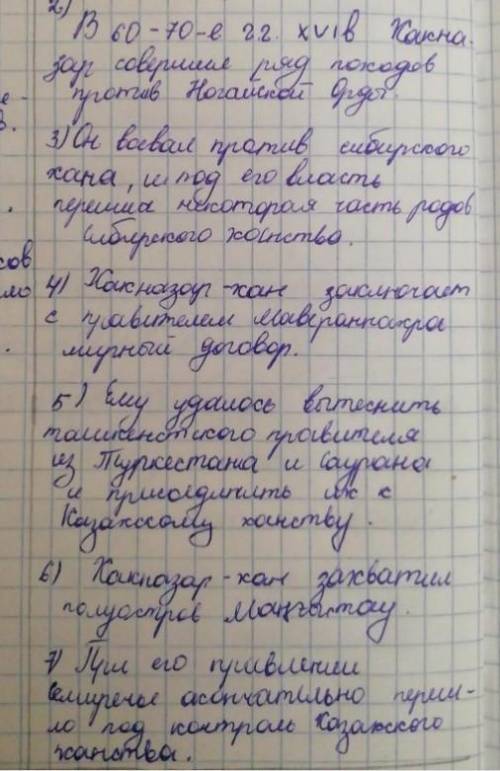 2)
В 60-70-е г.г. XVIв Хакна-
зар совершил ряд походов
против Ногайской Орды.
3) Он воевал против сибирского
хана, и под его власть
перешла некоторая часть родов
Сибирского ханства.
4) Хакназар-хан заключает
с правителем Мавераннахра
мирный договор.
5) Ему удалось вытеснить
ташкентского правителя
из Туркестана и Саурана
и присоединить их к
Казахскому ханству.
6) Хакназар-хан захватил
полуостров Маңғытау.
7) При его правлении
Семиречье окончательно переш-
ло под контроль Казахского
ханства.